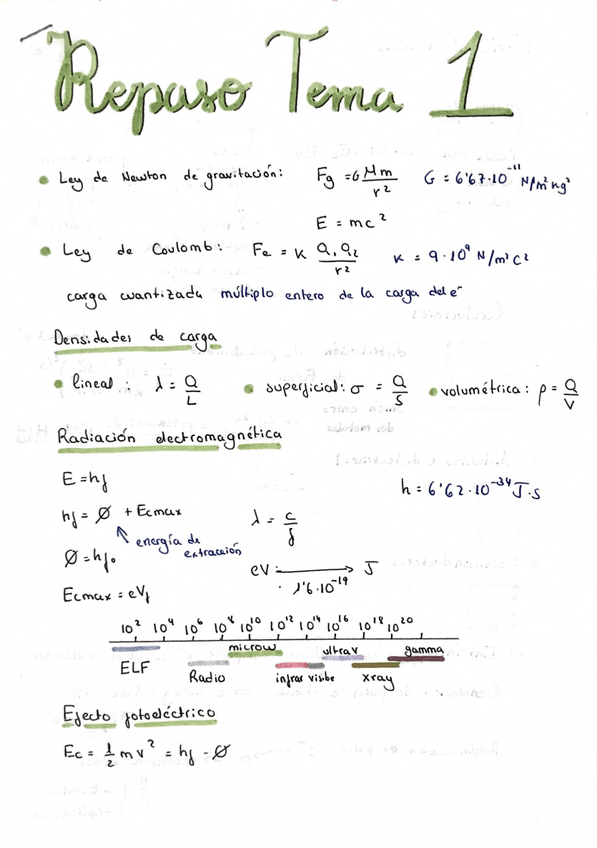 Repaso Tema 1
• Ley de Newton de gravitación: Fg = G Mm / r² G = 6'67·10⁻¹¹ N/m² kg²
E = mc²
• Ley de Coulomb: Fe = K Q₁ Q₂ / r² K = 9·10⁹ N/m² C²
carga cuantizada múltiplo entero de la carga del e⁻
Densidades de carga
• lineal: λ = Q / L • superficial: σ = Q / S • volumétrica: ρ = Q / V
Radiación electromagnética
E = hf h = 6'62·10⁻³⁴ J·s
hf = Ø + Ecmax λ = c / f
energía de extracción
Ø = hf₀
eV → J
· 1'6·10⁻¹⁹
Ecmax = eVf
10² 10⁴ 10⁶ 10⁸ 10¹⁰ 10¹² 10¹⁴ 10¹⁶ 10¹⁸ 10²⁰
microw ultrav gamma
ELF Radio infrar visibe xray
Efecto fotoeléctrico
Ec = 1/2 mv² = hf - Ø